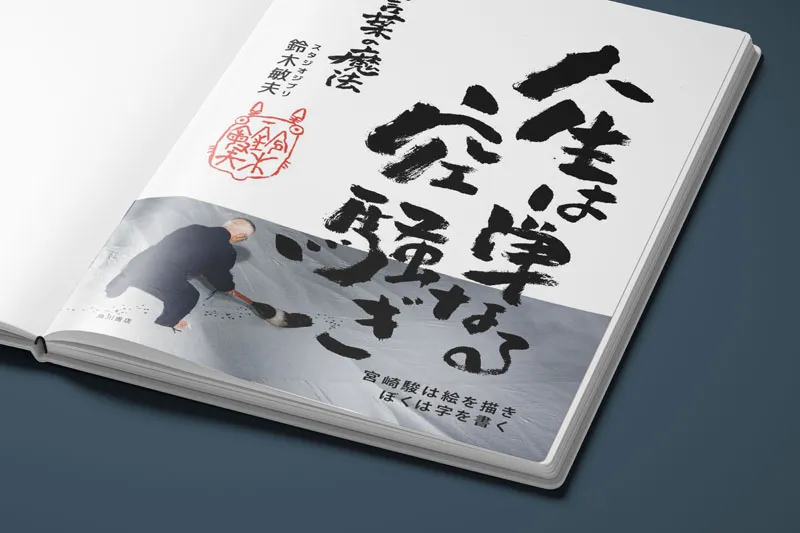 人生は単なる
空騒ぎ
言葉の魔法
スタジオジブリ
鈴木敏夫
宮崎駿は絵を描き
ぼくは字を書く
角川書店